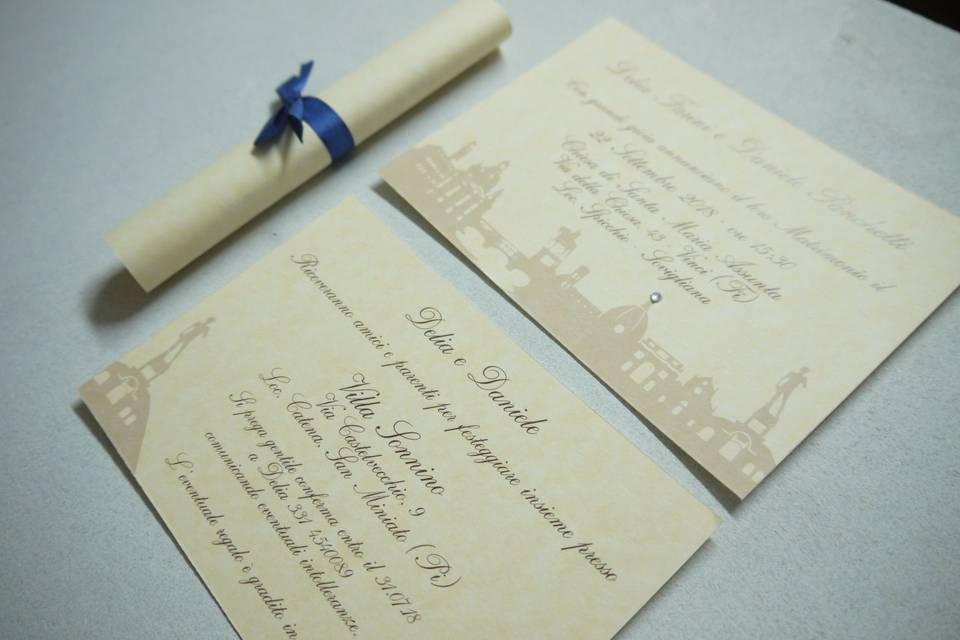 Delia e Daniele
Riceveranno amici e parenti per festeggiare insieme presso
Villa Sonnino
Via Castelvecchio, 9
Loc. Catena, San Miniato (Pi)
Si prega gentile conferma entro il 31.07.18
a Delia 331 4540089
comunicando eventuali intolleranze.
L'eventuale regalo è gradito in
Delia e Daniele
Con grande gioia annunciano il loro Matrimonio il
22 Settembre 2018 - ore 15.30
Chiesa di Santa Maria Assunta
Via della Chiesa, 43 - Vinci (Fi)
Loc. Spicchio - Sovigliana